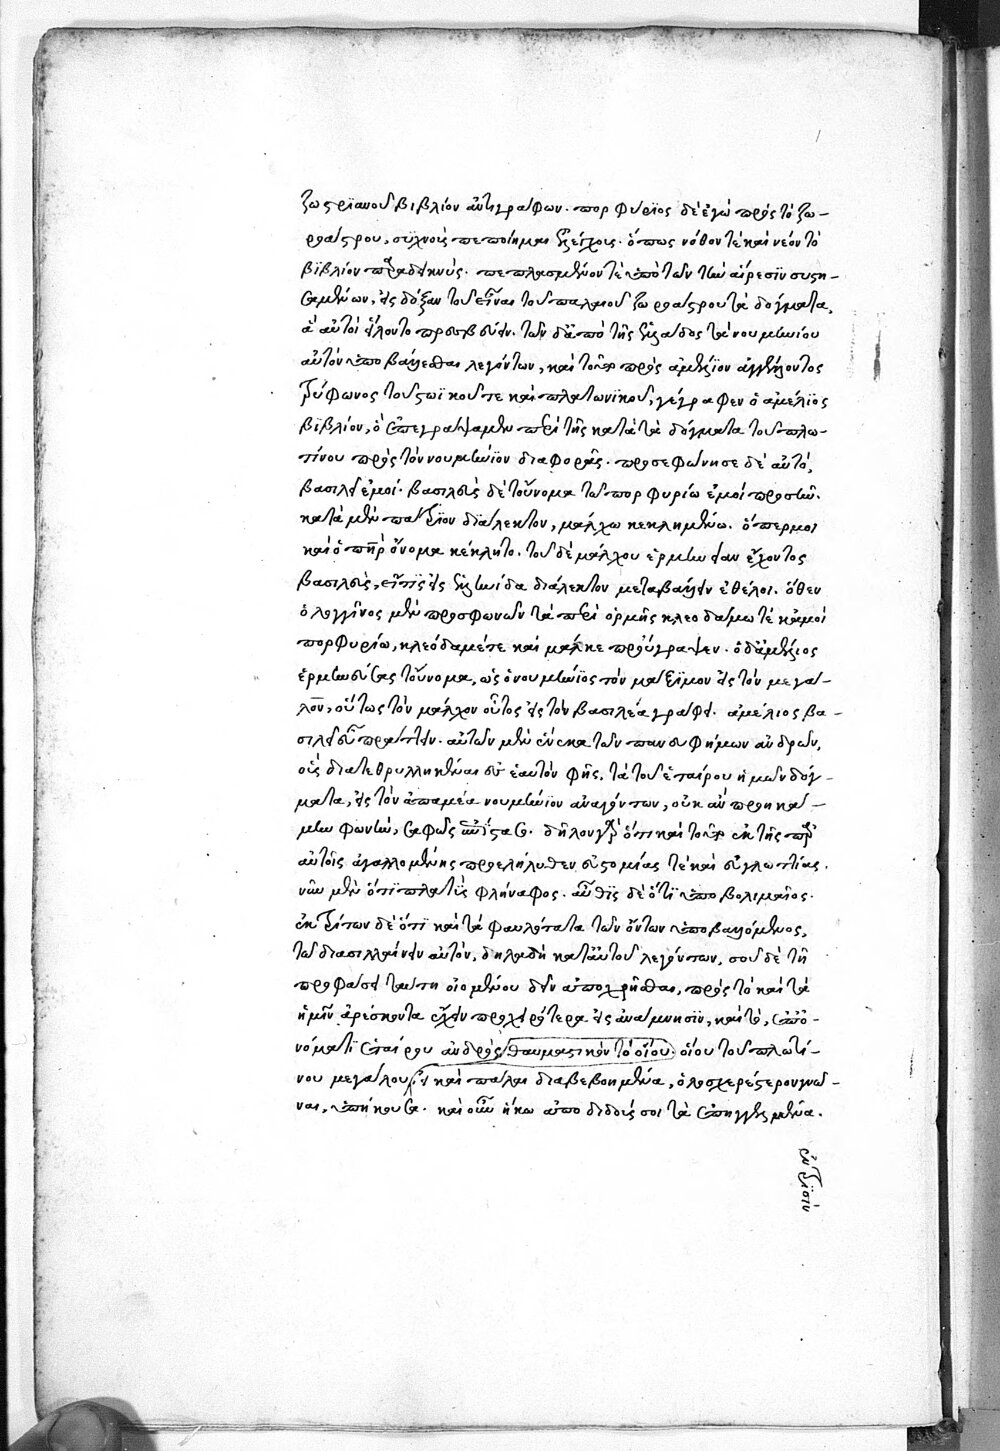 ζωστριανοῦ βιβλίον ἀντιγράφων. πορφύριος δὲ ἐγὼ πρὸς τὸ ζω-
ροάστρου, συχνοὺς πεποίημαι ἐλέγχους. ὅπως νόθον τὲ καὶ νέον τὸ
βϊβλίον παραδεικνύς. πεπλασμένον τὲ ὑπὸ τῶν τὴν αἵρεσϊν συστη-
σαμένων, εἰς δόξαν τοῦ εἶναι τοῦ παλαιοῦ ζωροάστρου τὰ δόγματα,
ἃ αὐτοὶ εἵλοντο πρεσβεύειν. τῶν δ' ἀπὸ τῆς ἑλλάδος τὰ νουμηνίου
αὐτὸν ὑποβάλλεσθαι λεγόντων, καὶ τοῦτο πρὸς ἀμέλϊον ἀγγέλλοντος
τρύφωνος τοῦ στωϊκοῦ τε καὶ πλατωνϊκοῦ, γέγραφεν ὁ ἀμέλϊος
βϊβλίον, ὃ ἐπεγράψαμεν περὶ τῆς κατὰ τὰ δόγματα τοῦ πλω-
τίνου πρὸς τὸν νουμήνϊον διαφορᾶς. προσεφώνησε δὲ αὐτὸ,
βασιλεῖ ἐμοί. βασιλεὺς δὲ τοὔνομα τῷ πορφυρίω ἐμοὶ προσῆν.
κατὰ μὲν πάτρϊον διάλεκτον, μάλχω κεκλημένω. ὅπερ μοι
καὶ ὁ πῆρ ὄνομα κέκλητο. τοῦ δὲ μάλχου ἑρμηνείαν ἔχοντος
βασιλεὺς, εἴ τις εἰς ἑλληνίδα διάλεκτον μεταβάλλειν ἐθέλοι. ὅθεν
ὁ λογγῖνος μὲν προσφωνῶν τὰ περὶ ὁρμῆς κλεοδάμω τὲ κἀμοὶ
πορφυρίω, κλεόδαμέ τε καὶ μάλκε προὔγραψεν. ὁ δ' ἀμέλϊος
ἑρμηνεύσας τοὔνομα, ὡς ὁ νουμήνϊος τὸν μάξϊμον εἰς τὸν μεγά-
λον, οὕτως τὸν μάλχον οὗτος εἰς τὸν βασιλέα γράφει. ἀμέλιος βα-
σιλεῖ εὖ πράττειν. αὐτῶν μὲν ἕνεκα τῶν πανευφήμων ἀνδρῶν,
οὓς διατεθρυλληκέναι εὖ ἑαυτὸν φῂς, τὰ τοῦ ἑταίρου ἡμῶν δόγ-
ματα, εἰς τὸν ἀπαμέα νουμήνϊον ἀναγόντων, οὐκ ἂν προηκά-
μην φωνὴν, σαφῶς ἐπίστασο. δῆλον γὰρ ὅτι καὶ τοῦτο ἐκ τῆς παρ'
αὐτοῖς ἀγαλλομένης προελήλυθεν εὐστομίας τὲ καὶ εὐγλωττίας.
νῦν μὲν ὅτϊ πλατὺς φλήναφος. αὖθϊς δὲ ὅτϊ ὑποβολιμαῖος.
ἐκ τρίτων δὲ ὅτϊ καὶ τὰ φαυλότατα τῶν ὄντων ὑποβαλλόμενος,
τῷ διασιλλαίνειν αὐτὸν, δηλαδὴ κατ' αὐτοῦ λεγόντων. σοῦ δὲ τῇ
προφάσει ταύτη οἰομένου δεῖν ἀποχρῆσθαι, πρὸς τὸ καὶ τὰ
ἡμῖν ἀρέσκοντα ἔχειν προχειρότερα εἰς ἀνάμνησϊν, καὶ τῶ, ἐπ' ὀ-
νόματϊ ἑταίρου ἀνδρὸς θαυμαστικὸν τὸ οἵου οἵου τοῦ πλωτί-
νου μεγάλου, εἰ καὶ πάλαι διαβεβοημένα, ὁλοσχερέστερον γνῶ-
ναι, ὑπήκουσα. καὶ οὖν ἥκω ἀποδιδούς σοι τὰ ἐπηγγελμένα.
ἐν τρϊσὶν